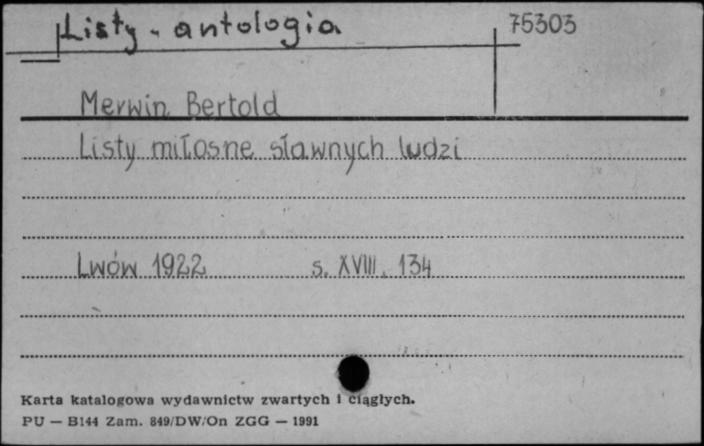 Listy - antologia 75303
Merwin Bertold
Listy miłosne sławnych ludzi
Lwów 1922 s. XVIII, 134
Karta katalogowa wydawnictw zwartych i ciągłych.
PU — B144 Zam. 849/DW/On ZGG — 1991